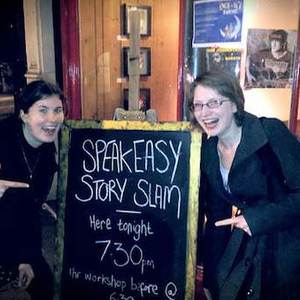 SPEAKEASY
STORY SLAM
Here tonight
7:30pm
1hr workshop before @
6:30